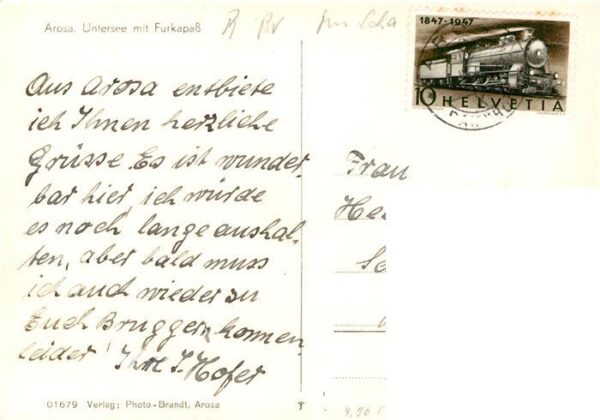 Arosa. Untersee mit Furkapaß
1847-1947
10 HELVETIA
Aus Arosa entbiete
ich Ihnen herzliche
Grüsse. Es ist wunder-
bar hier, ich würde
es noch lange aushal-
ten, aber bald muss
ich auch wieder zu
Euch Bruggern kommen
leider! Ihre J. Hofer
Frau
01679 Verlag: Photo-Brandt, Arosa
T
4.90